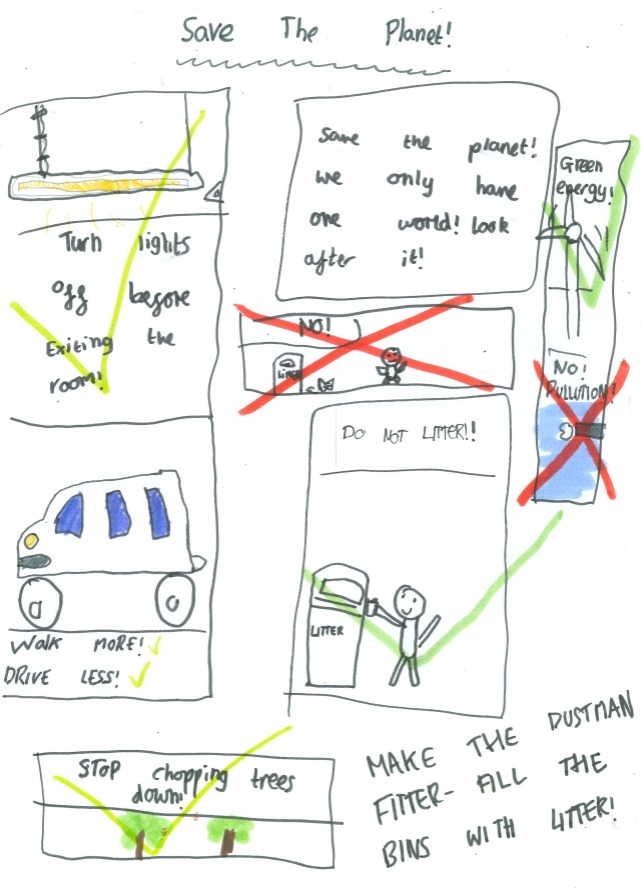 Save The Planet!
Save the planet!
we only have
one world! look
after it!
Green
energy!
Turn lights
off before
Exiting the
room!
NO!
LITTER
NO!
PULLUTION!
DO NOT LITTER!!
LITTER
WALK MORE!
DRIVE LESS!
STOP chopping trees
down!
MAKE THE DUSTMAN
FITTER- FILL THE
BINS WITH LITTER!